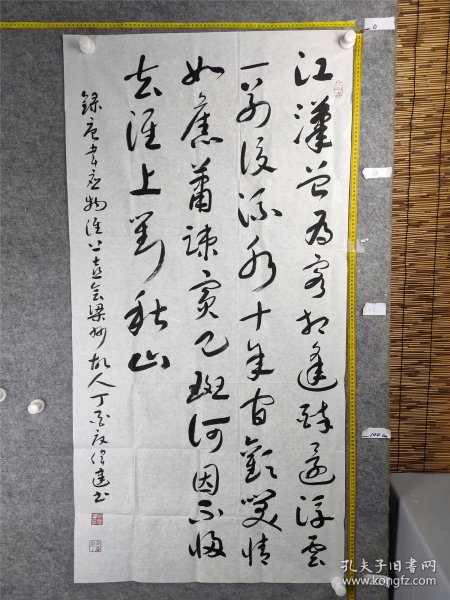 江漢曾為客相逢醉還浮雲
一別後流水十年間歡笑情
如舊蕭疏鬢已斑何因不歸
去淮上對秋山
錄唐韋應物淮上喜會梁州故人丁酉秋偉建书
孔夫子旧书网
www.kongfz.com